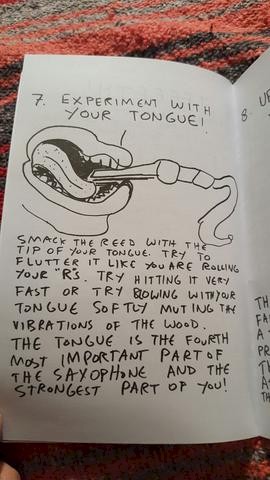 7. EXPERIMENT WITH
YOUR TONGUE!
SMACK THE REED WITH THE
TIP OF YOUR TONGUE. TRY TO
FLUTTER IT LIKE YOU ARE ROLLING
YOUR "R"S. TRY HITTING IT VERY
FAST OR TRY BLOWING WITH YOUR
TONGUE SOFTLY MUTING THE
VIBRATIONS OF THE WOOD.
THE TONGUE IS THE FOURTH
MOST IMPORTANT PART OF
THE SAXOPHONE AND THE
STRONGEST PART OF YOU!
8.
TH
FA
A
PR
TH
A
TH